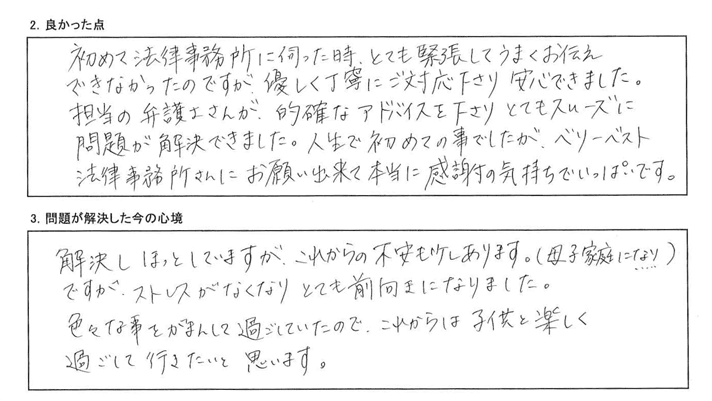 2. 良かった点
初めて法律事務所に伺った時、とても緊張してうまくお伝え
できなかったのですが、優しく丁寧にご対応下さり 安心できました。
担当の弁護士さんが、的確なアドバイスを下さり とてもスムーズに
問題が解決できました。人生で初めての事でしたが、ベリーベスト
法律事務所さんに お願い出来て本当に 感謝の気持ちでいっぱいです。
3. 問題が解決した今の心境
解決し ほっとしていますが、これからの不安も少しあります。(母子家庭になり)
ですが、ストレスがなくなり とても前向きになりました。
色々な事をがまんして過ごしていたので、これからは 子供と楽しく
過ごして行きたいと 思います。